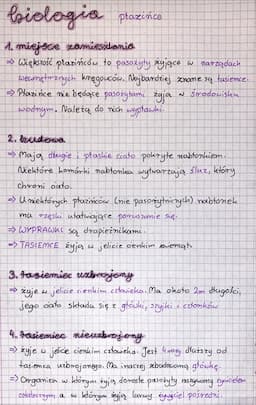 biologia płazińce
1. miejsce zamieszkania
⇒ Większość płazińców to pasożyty żyjące w narządach
wewnętrznych kręgowców. Najbardziej znane są tasiemce.
⇒ Płazińce nie będące pasożytami żyją w środowisku
wodnym. Należą do nich wypławki.
2. budowa
⇒ Mają długie i płaskie ciało pokryte nabłonkiem.
Niektóre komórki nabłonka wytwarzają śluz, który
chroni ciało.
⇒ U niektórych płazińców (nie pasożytniczych) nabłonek
ma rzęski ułatwiające poruszanie się.
⇒ WYPŁAWKI są drapieżnikami.
⇒ TASIEMCE żyją w jelicie cienkim zwierząt.
3. tasiemiec uzbrojony
⇒ żyje w jelicie cienkim człowieka. Ma około 2m długości,
jego ciało składa się z główki, szyjki i członków
4. tasiemiec nieuzbrojony
⇒ żyje w jelicie cienkim człowieka. Jest dłuższy od
tasiemca uzbrojonego. Ma inaczej zbudowaną główkę.
⇒ Organizm w którym żyją dorosłe pasożyty nazywamy żywicielem
ostatecznym a w którym żyją larwy żywiciel pośredni.